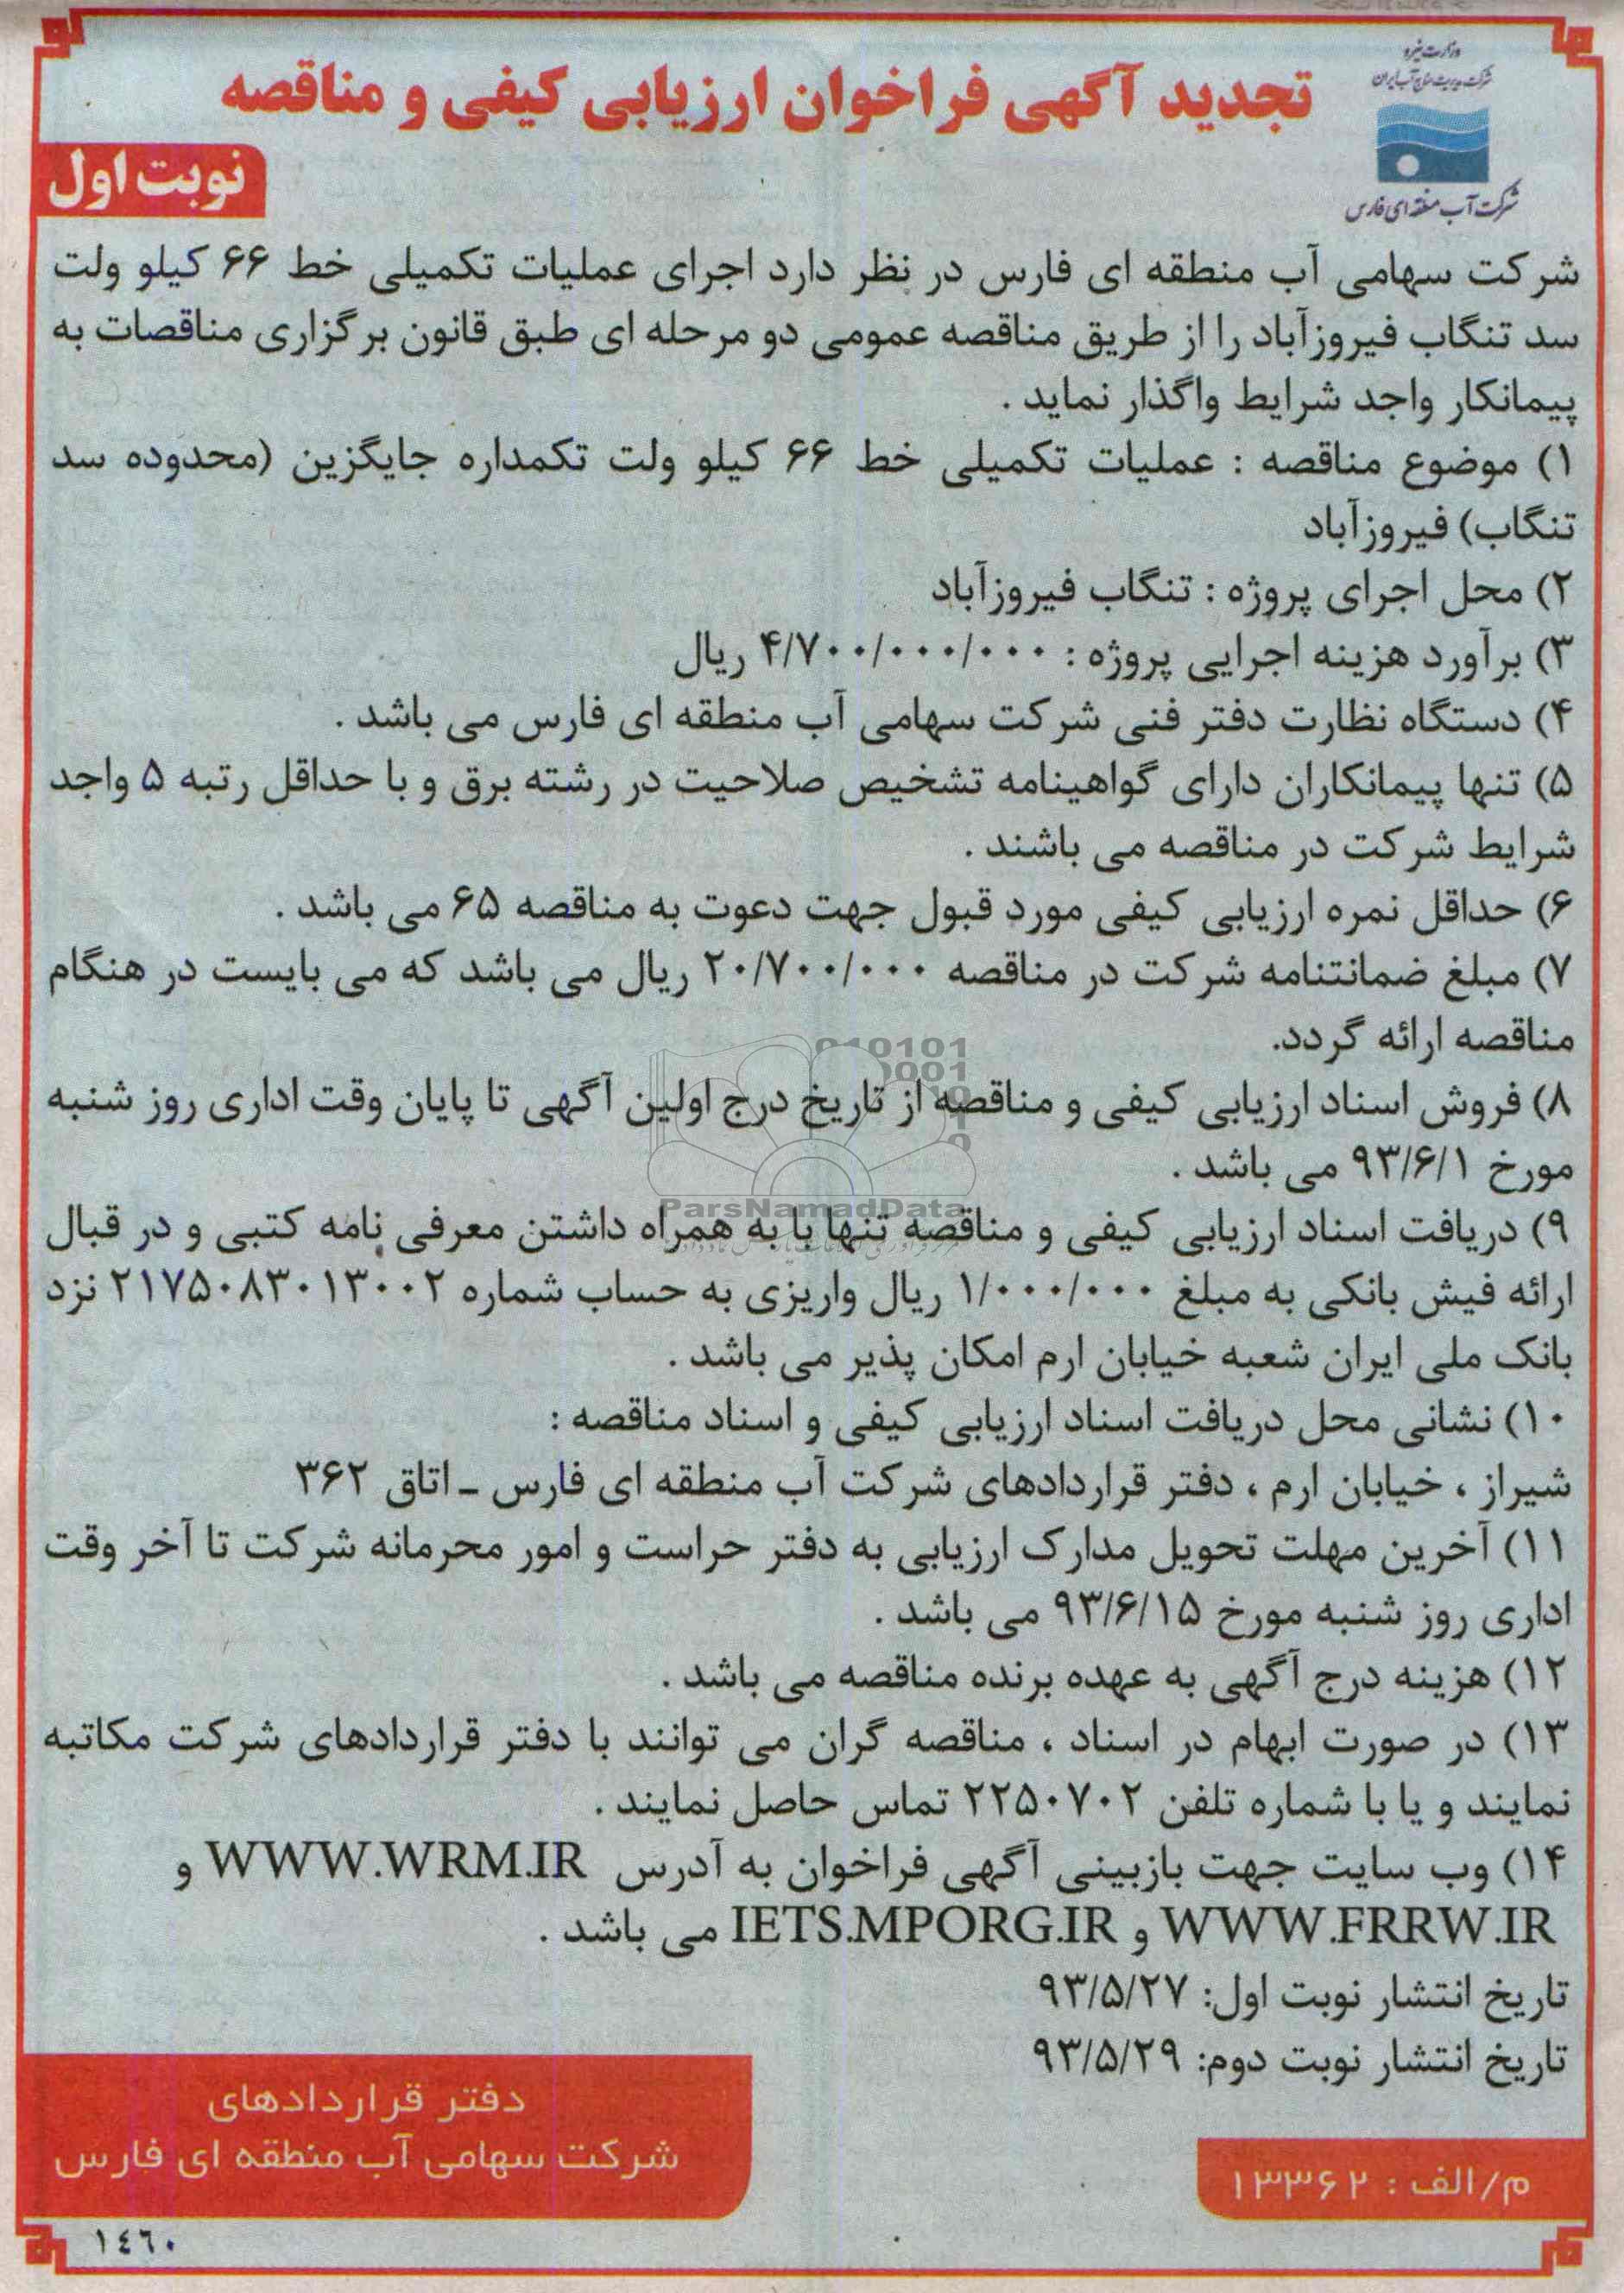 وزارت نیرو
شرکت مدیریت منابع آب ایران
شرکت آب منطقه ای فارس
تجدید آگهی فراخوان ارزیابی کیفی و مناقصه
نوبت اول
شرکت سهامی آب منطقه ای فارس در نظر دارد اجرای عملیات تکمیلی خط ۶۶ کیلو ولت
سد تنگاب فیروزآباد را از طریق مناقصه عمومی دو مرحله ای طبق قانون برگزاری مناقصات به
پیمانکار واجد شرایط واگذار نماید .
۱) موضوع مناقصه : عملیات تکمیلی خط ۶۶ کیلو ولت تکمداره جایگزین (محدوده سد
تنگاب) فیروزآباد
۲) محل اجرای پروژه : تنگاب فیروزآباد
۳) برآورد هزینه اجرایی پروژه : ۴/۷۰۰/۰۰۰/۰۰۰ ریال
۴) دستگاه نظارت دفتر فنی شرکت سهامی آب منطقه ای فارس می باشد .
۵) تنها پیمانکاران دارای گواهینامه تشخیص صلاحیت در رشته برق و با حداقل رتبه ۵ واجد
شرایط شرکت در مناقصه می باشند .
۶) حداقل نمره ارزیابی کیفی مورد قبول جهت دعوت به مناقصه ۶۵ می باشد .
۷) مبلغ ضمانتنامه شرکت در مناقصه ۲۰/۷۰۰/۰۰۰ ریال می باشد که می بایست در هنگام
مناقصه ارائه گردد.
۸) فروش اسناد ارزیابی کیفی و مناقصه از تاریخ درج اولین آگهی تا پایان وقت اداری روز شنبه
مورخ ۹۳/۶/۱ می باشد .
ParsNamadData
۹) دریافت اسناد ارزیابی کیفی و مناقصه تنها با به همراه داشتن معرفی نامه کتبی و در قبال
ارائه فیش بانکی به مبلغ ۱/۰۰۰/۰۰۰ ریال واریزی به حساب شماره ۲۱۷۵۰۸۳۰۱۳۰۰۲ نزد
بانک ملی ایران شعبه خیابان ارم امکان پذیر می باشد .
۱۰) نشانی محل دریافت اسناد ارزیابی کیفی و اسناد مناقصه :
شیراز ، خیابان ارم ، دفتر قراردادهای شرکت آب منطقه ای فارس ـ اتاق ۳۶۲
۱۱) آخرین مهلت تحویل مدارک ارزیابی به دفتر حراست و امور محرمانه شرکت تا آخر وقت
اداری روز شنبه مورخ ۹۳/۶/۱۵ می باشد .
۱۲) هزینه درج آگهی به عهده برنده مناقصه می باشد .
۱۳) در صورت ابهام در اسناد ، مناقصه گران می توانند با دفتر قراردادهای شرکت مکاتبه
نمایند و یا با شماره تلفن ۲۲۵۰۷۰۲ تماس حاصل نمایند .
۱۴) وب سایت جهت بازبینی آگهی فراخوان به آدرس WWW.WRM.IR و
WWW.FRRW.IR و IETS.MPORG.IR می باشد .
تاریخ انتشار نوبت اول: ۹۳/۵/۲۷
تاریخ انتشار نوبت دوم: ۹۳/۵/۲۹
دفتر قراردادهای
شرکت سهامی آب منطقه ای فارس
م/الف : ۱۳۳۶۲
۱٤٦۰